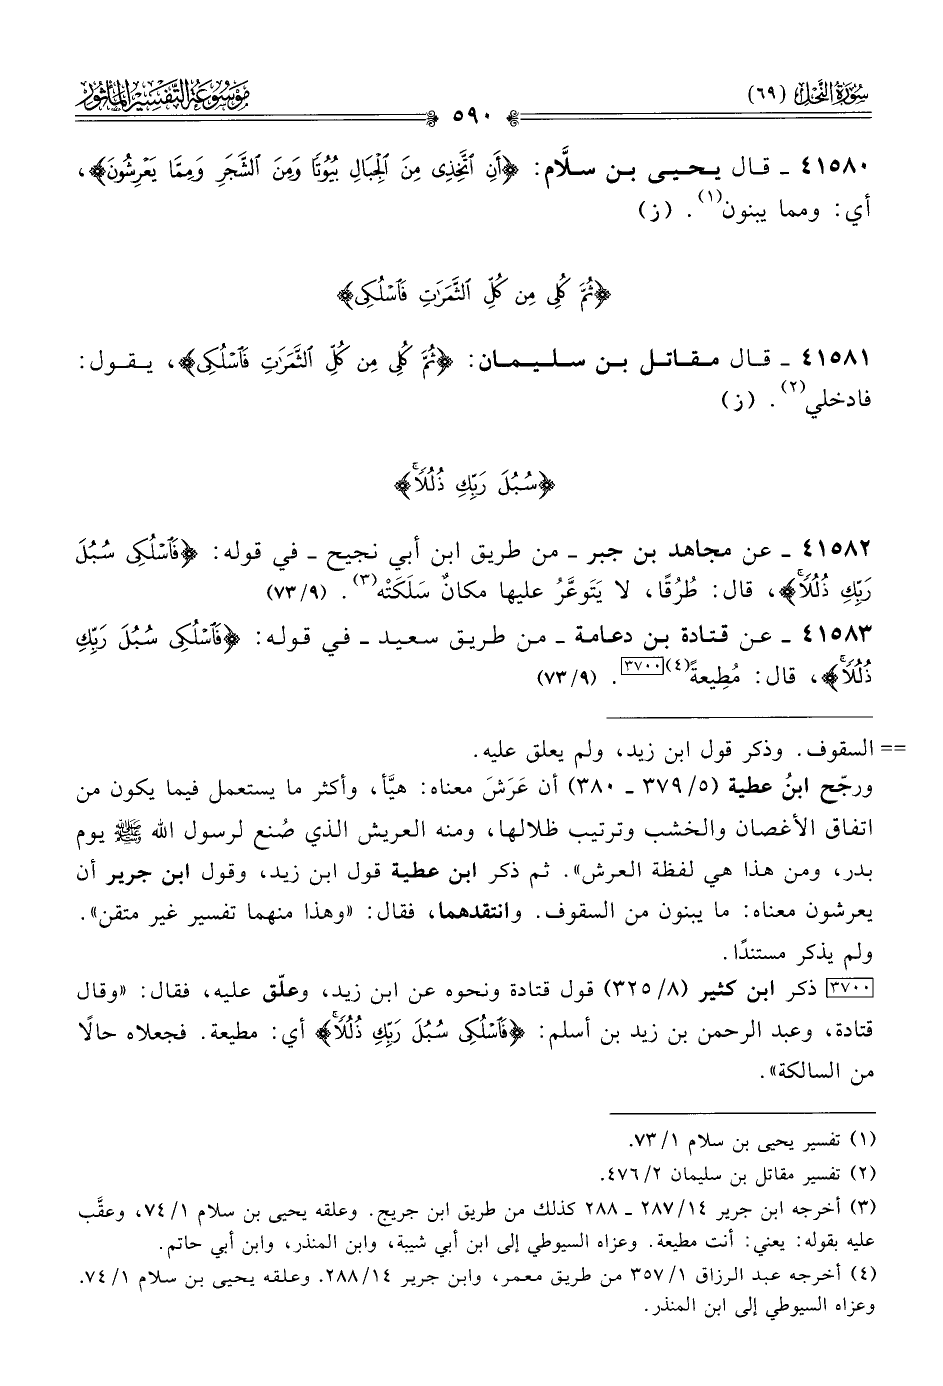 سورة النحل (٦٩)
موسوعة التفسير المأثور
٥٩٠
٤١٥٨٠ ـ قال يحيى بن سلَّام: ﴿أَنِ ٱتَّخِذِى مِنَ ٱلْجِبَالِ بُيُوتًا وَمِنَ ٱلشَّجَرِ وَمِمَّا يَعْرِشُونَ﴾،
أي: ومما يبنون(١). (ز)
﴿ثُمَّ كُلِى مِن كُلِّ ٱلثَّمَرَٰتِ فَٱسْلُكِى﴾
٤١٥٨١ ـ قال مقاتل بن سليمان: ﴿ثُمَّ كُلِى مِن كُلِّ ٱلثَّمَرَٰتِ فَٱسْلُكِى﴾، يقول:
فادخلي(٢). (ز)
﴿سُبُلَ رَبِّكِ ذُلُلًاۚ﴾
٤١٥٨٢ ـ عن مجاهد بن جبر ـ من طريق ابن أبي نجيح ـ في قوله: ﴿فَٱسْلُكِى سُبُلَ
رَبِّكِ ذُلُلًاۚ﴾، قال: طُرُقًا، لا يَتَوعَّرُ عليها مكانٌ سَلَكَتْه(٣). (٩/٧٣)
٤١٥٨٣ ـ عن قتادة بن دعامة ـ من طريق سعيد ـ في قوله: ﴿فَٱسْلُكِى سُبُلَ رَبِّكِ
ذُلُلًاۚ﴾، قال: مُطِيعةً(٤)[٣٧٠٠]. (٩/٧٣)
== السقوف. وذكر قول ابن زيد، ولم يعلق عليه.
ورجّح ابنُ عطية (٥/٣٧٩ ـ ٣٨٠) أن عَرَشَ معناه: هيَّأ، وأكثر ما يستعمل فيما يكون من
اتفاق الأغصان والخشب وترتيب ظلالها، ومنه العريش الذي صُنع لرسول الله ﷺ يوم
بدر، ومن هذا هي لفظة العرش». ثم ذكر ابن عطية قول ابن زيد، وقول ابن جرير أن
يعرشون معناه: ما يبنون من السقوف. وانتقدهما، فقال: «وهذا منهما تفسير غير متقن».
ولم يذكر مستندًا.
[٣٧٠٠] ذكر ابن كثير (٨/٣٢٥) قول قتادة ونحوه عن ابن زيد، وعلّق عليه، فقال: «وقال
قتادة، وعبد الرحمن بن زيد بن أسلم: ﴿فَٱسْلُكِى سُبُلَ رَبِّكِ ذُلُلًاۚ﴾ أي: مطيعة. فجعلاه حالًا
من السالكة».
(١) تفسير يحيى بن سلام ١/٧٣.
(٢) تفسير مقاتل بن سليمان ٢/٤٧٦.
(٣) أخرجه ابن جرير ١٤/٢٨٧ ـ ٢٨٨ كذلك من طريق ابن جريج. وعلقه يحيى بن سلام ١/٧٤، وعقَّب
عليه بقوله: يعني: أنت مطيعة. وعزاه السيوطي إلى ابن أبي شيبة، وابن المنذر، وابن أبي حاتم.
(٤) أخرجه عبد الرزاق ١/٣٥٧ من طريق معمر، وابن جرير ١٤/٢٨٨. وعلقه يحيى بن سلام ١/٧٤.
وعزاه السيوطي إلى ابن المنذر.